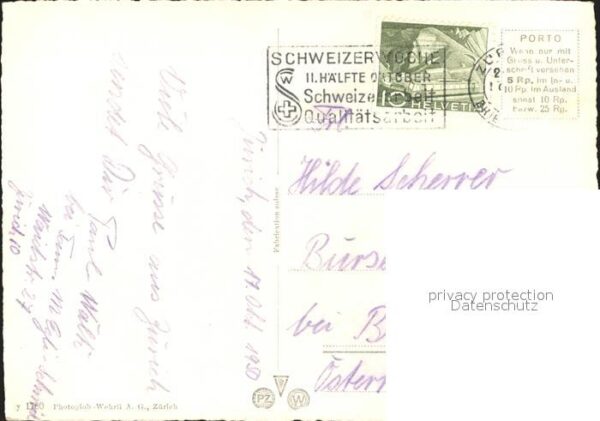 SCHWEIZERWOCHE
II. HÄLFTE OKTOBER
Schweizer Arbeit
Qualitätsarbeit
10 HELVETIA
PORTO
Wenn nur mit
Gruss u. Unter-
schrift versehen
5 Rp. im In- u.
10 Rp. im Ausland
sonst 10 Rp.
bezw. 25 Rp.
Zürich, den 17. Okt. 1950
Viele Grüsse aus Zürich
sendet Dir
Paul Wälti
bei Fam. M.
Zürich 10
Hilde Scherrer
bei B
Österr
privacy protection
Datenschutz
Fabrication suisse
PZ W
y 1760 Photoglob-Wehrli A. G., Zürich